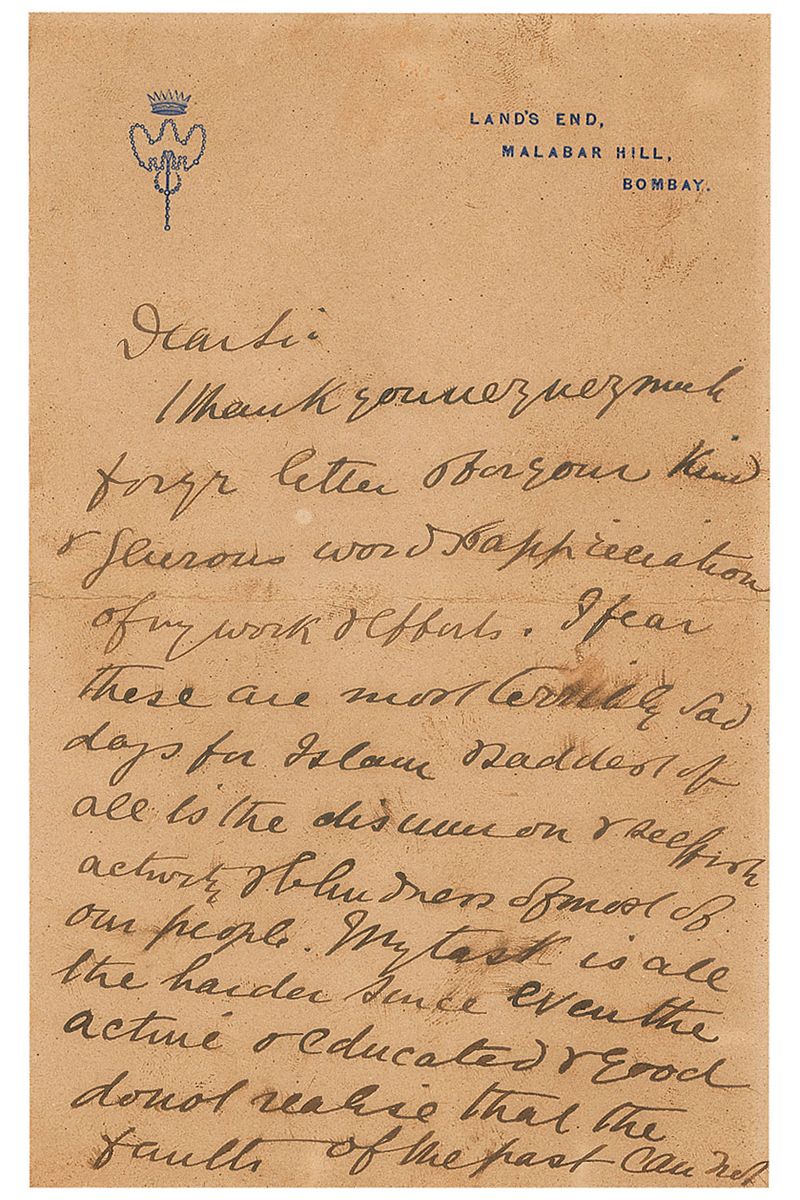 LAND'S END,
MALABAR HILL,
BOMBAY.
Dear Sir
I thank you very very much
for yr letter & for your kind
& generous words & appreciation
of my work & efforts. I fear
these are most terribly sad
days for Islam & saddest of
all is the disunion & selfish
activity & blindness of most of
our people. My task is all
the harder since even the
active & educated & good
do not realise that the
faults of the past can not